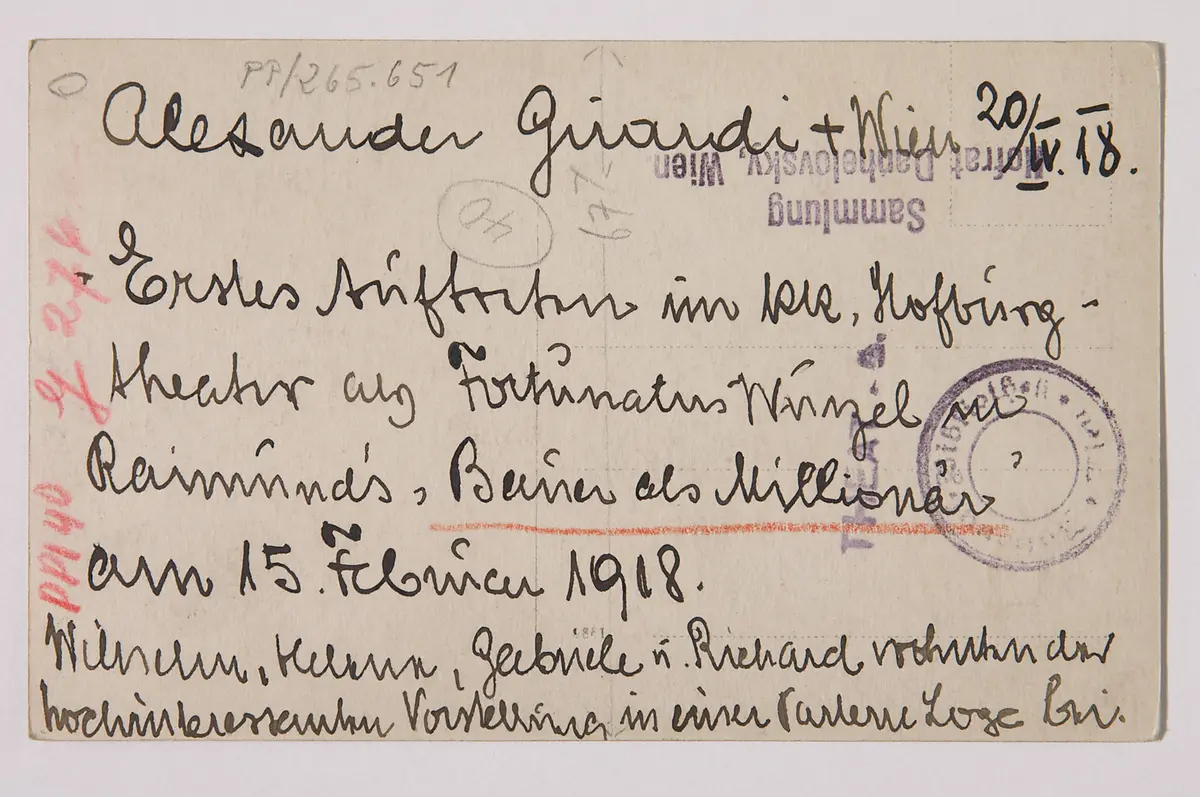 PP/265.651
Alexander Girardi + Wien 20/IV. 18.
Hofrat Wien.
Sammlung
677
- Erstes Auftreten im kk. Hofburg-
theater als Fortunatus Wurzel in
Raimund's „Bauer als Millionär"
am 15. Februar 1918.
Wilhelm, Helene, Gabriele u. Richard wohnten der
hochinteressanten Vorstellung in einer Parterre Loge bei.